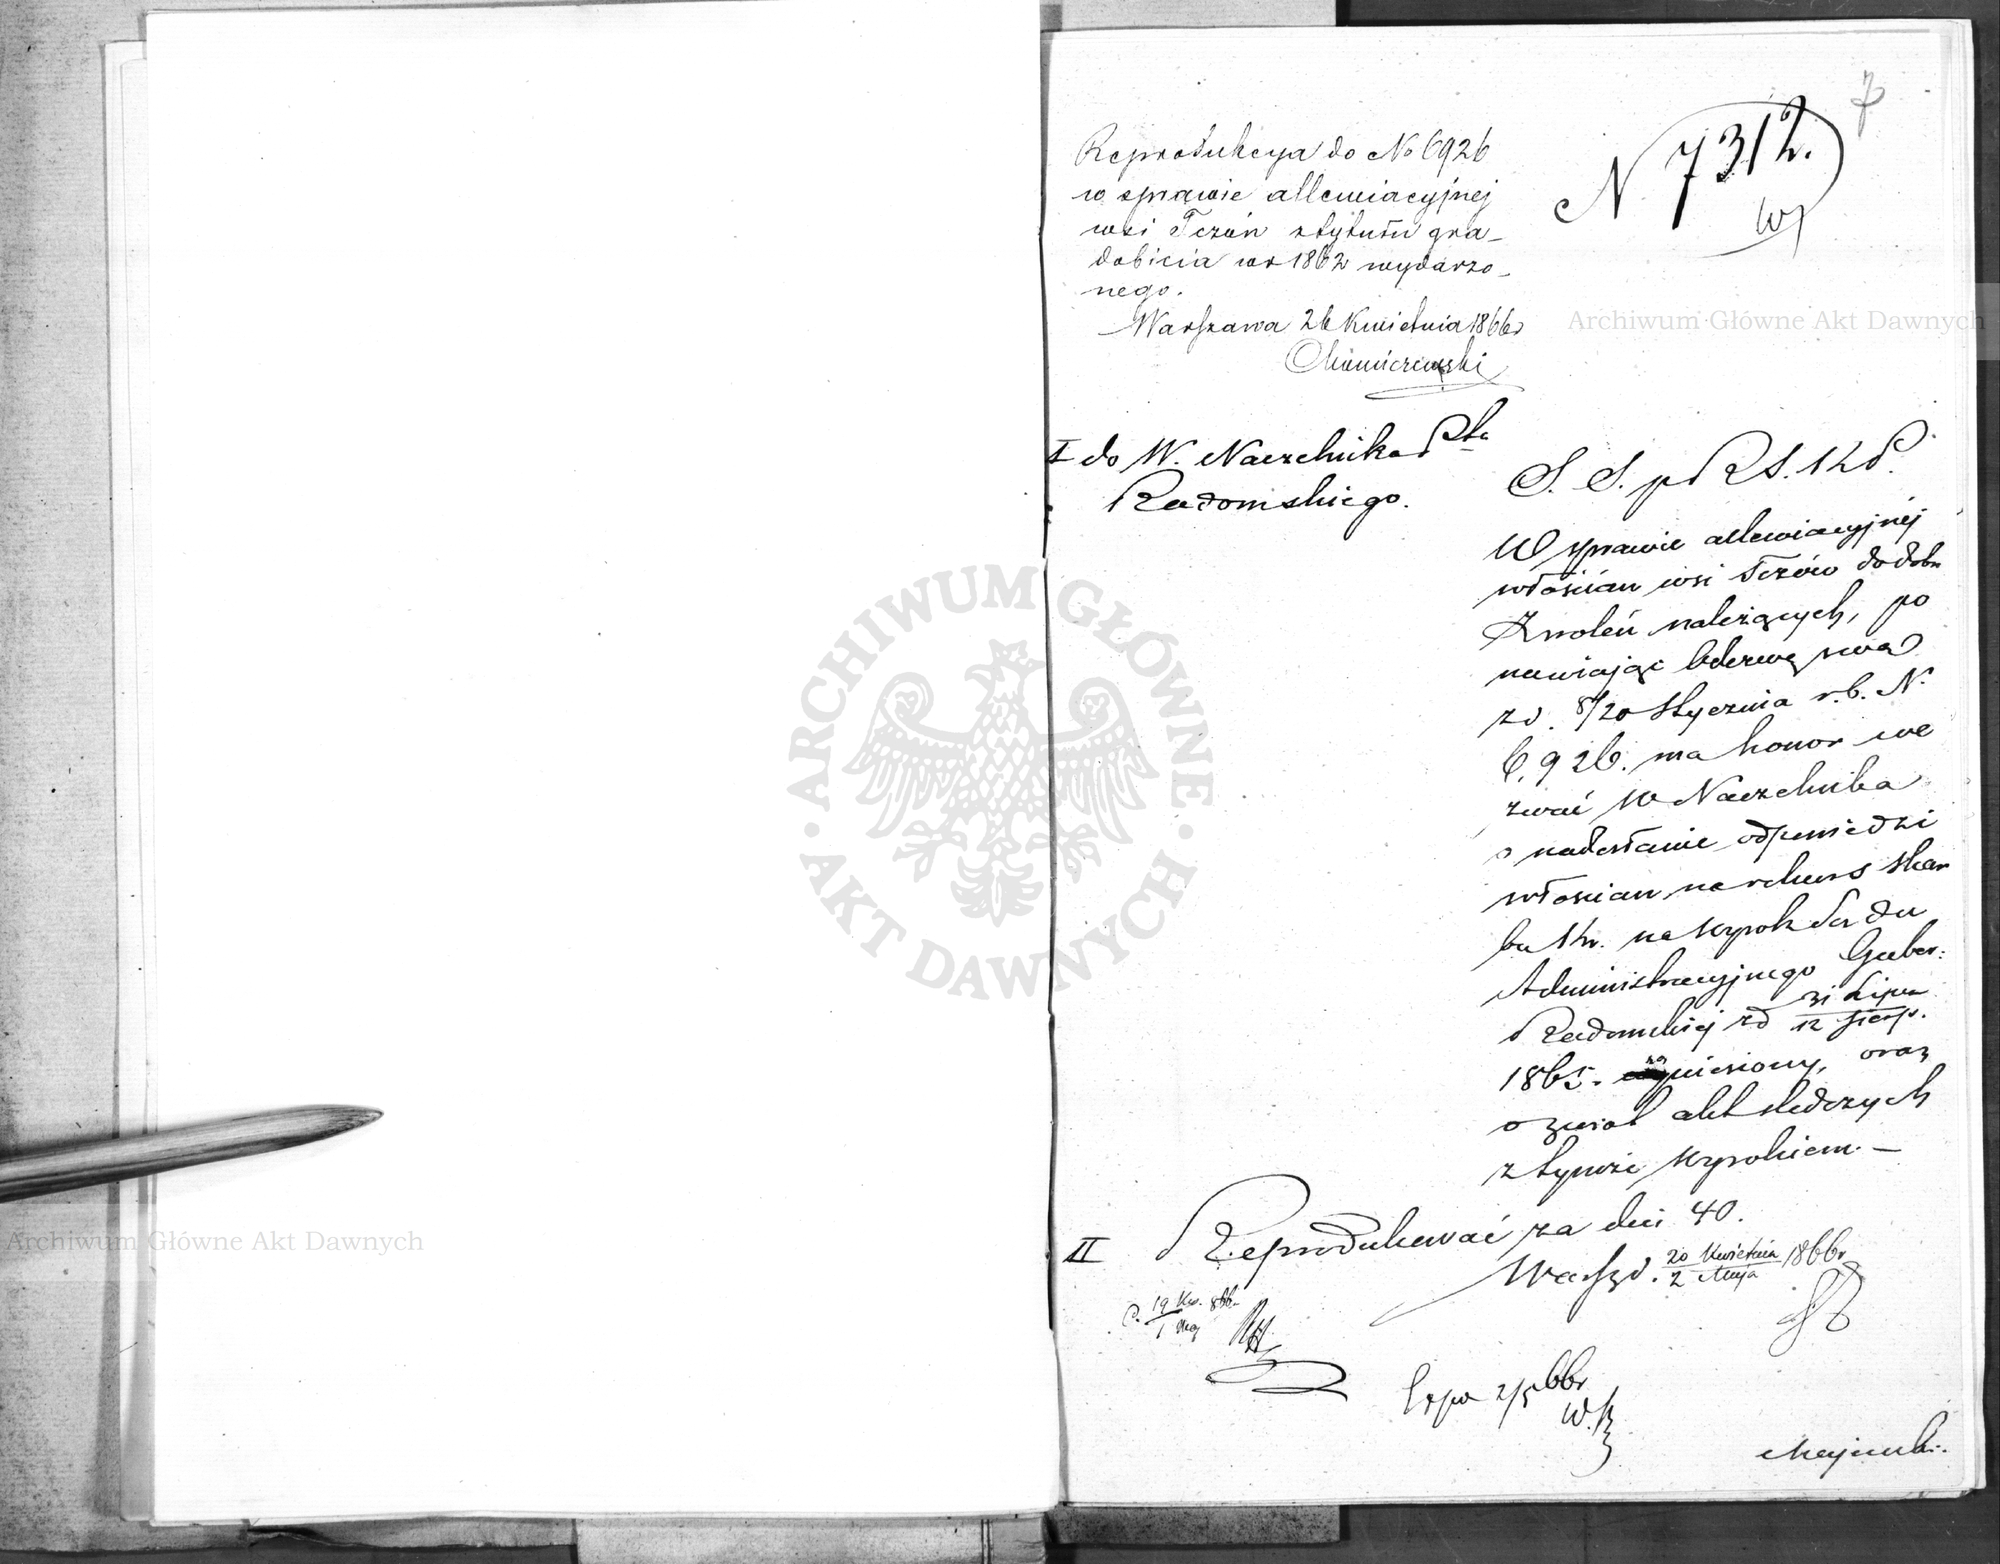 7
Reprodukcya do No 6926
w sprawie allewiacyjnej
wsi Tczów z tytułu gra-
dobicia w r 1862 wydarzo-
nego.
Warszawa 26 Kwietnia 1866 r
N 7312.
W
I do W. Naczelnika Ptu
Radomskiego.
S. S. p R S. K P.
W sprawie allewiacyjnéj
włościan wsi Tczów do dóbr
Zwoleń należących, po
nawiając Odezwę swą
z d. 8/20 Stycznia r. b. N.
6,926. ma honor we
zwać W Naczelnika
o nadesłanie odpowiedzi
włościan na rekurs Skar
bu Kr. na wyrok Sądu
Administracyjnego Guber:
Radomskiej z d 31 Lipca
12 Sierp.
1865. zaniesiony, oraz
o zwrot akt śledczych
z tymże wyrokiem. —
II Reprodukować za dni 40.
Warsz d. 20 Kwietnia 1866 r
2 Maja
19 Kw. 866 r
1 Maj
Exp 2/5 66 r
Archiwum Główne Akt Dawnych
Archiwum Główne Akt Dawnych
ARCHIWUM GŁÓWNE
· AKT DAWNYCH ·